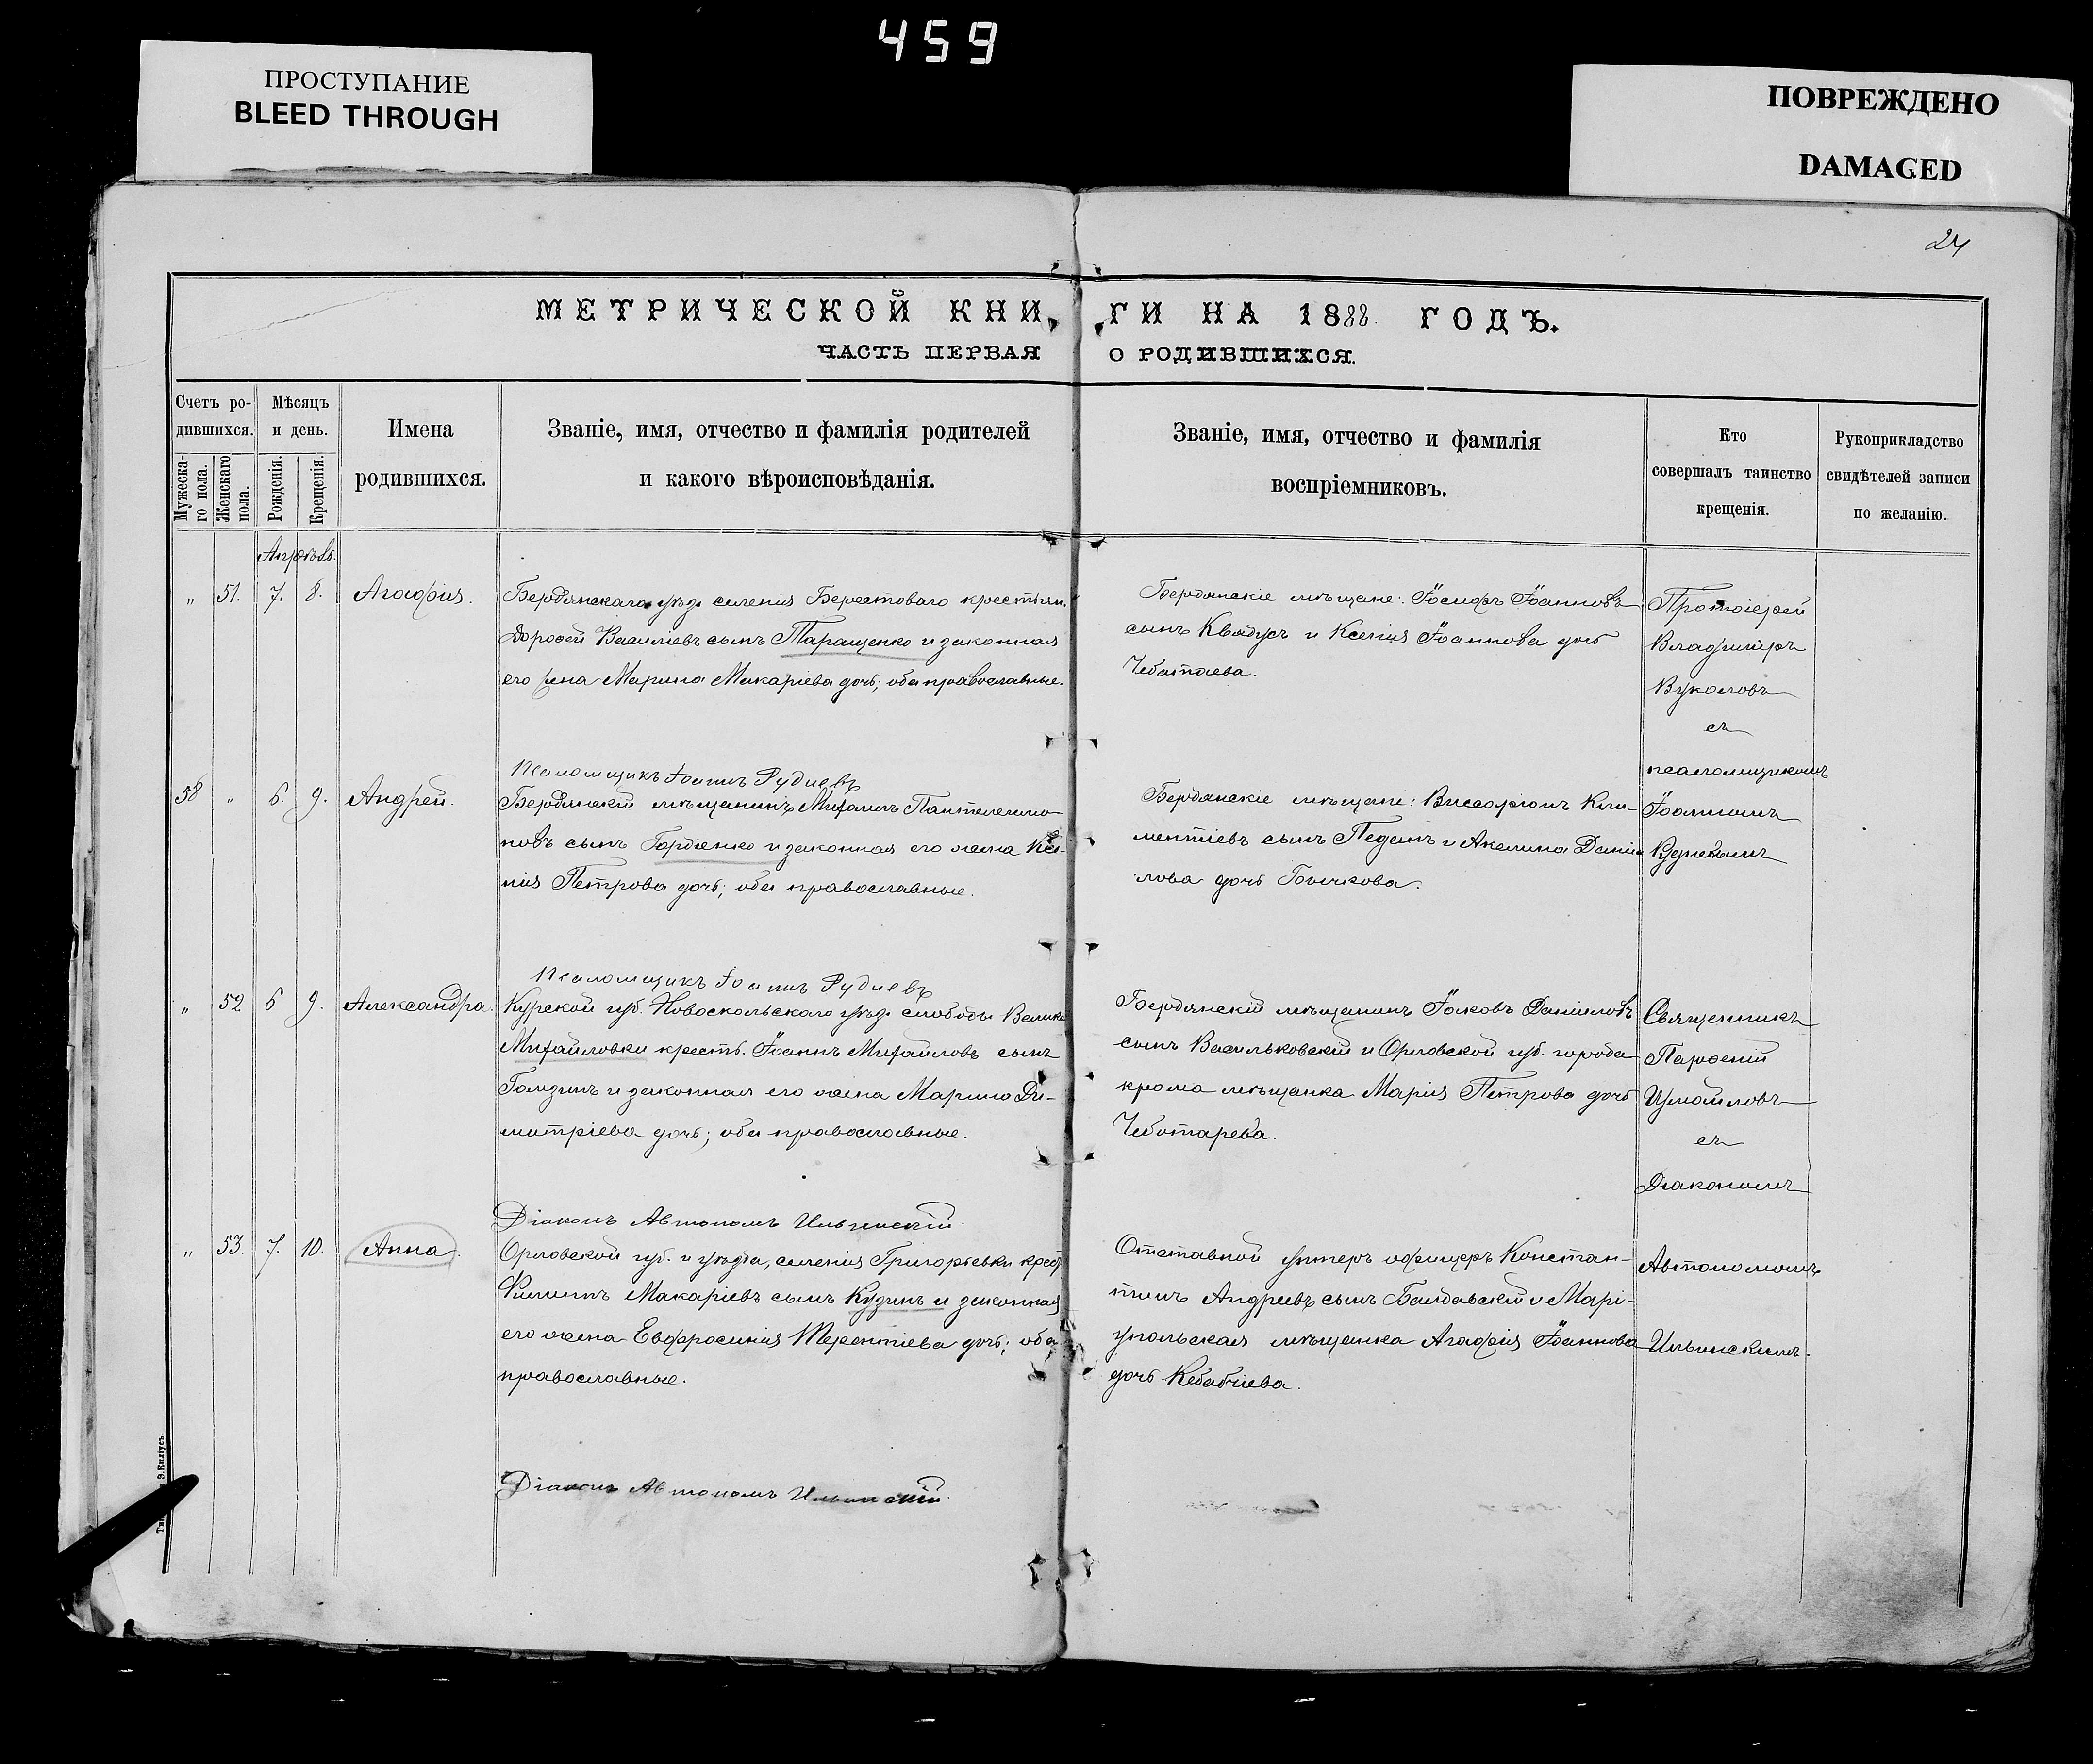 459
ПРОСТУПАНИЕ
BLEED THROUGH
ПОВРЕЖДЕНО
DAMAGED
24
МЕТРИЧЕСКОЙ КНИГИ НА 1888 ГОДЪ.
ЧАСТЬ ПЕРВАЯ О РОДИВШИХСЯ.
Счетъ ро-
дившихся.
Мужеска-
го пола.
Женскаго
пола.
Мѣсяцъ
и день.
Рожденія.
Крещенія.
Имена
родившихся.
Званіе, имя, отчество и фамилія родителей
и какого вѣроисповѣданія.
Званіе, имя, отчество и фамилія
воспріемниковъ.
Кто
совершалъ таинство
крещенія.
Рукоприкладство
свидѣтелей записи
по желанію.
Апрѣль.
„ 51. 7. 8. Агафія.
Бердянскаго уѣзд. селенія Берестоваго крестьян.
Дорофей Василіевъ сынъ Таращенко и законная
его жена Марина Макаріева дочь; оба православные.
Бердянскіе мѣщане: Іосифъ Іоанновъ
сынъ Квядусъ и Ксенія Іоаннова дочь
Чебатаева.
Протоіерей
Владиміръ
Вуколовъ
съ
псаломщикомъ
Іоанномъ
Рудневымъ
Псаломщикъ Іоаннъ Рудневъ
58 „ 6. 9. Андрей.
Бердянскій мѣщанинъ Михаилъ Пантелеимо-
новъ сынъ Гордіенко и законная его жена Ксе-
нія Петрова дочь; оба православные.
Бердянскіе мѣщане: Виссаріонъ Кли-
ментіевъ сынъ Педанъ и Акилина Дани-
лова дочь Бычкова.
Псаломщикъ Іоаннъ Рудневъ
„ 52 6 9. Александра.
Курской губ. Новоскольскаго уѣзд. слободы Велико
Михайловки крест. Іоаннъ Михайловъ сынъ
Гамзинъ и законная его жена Марина Ди-
митріева дочь; оба православные.
Бердянскій мѣщанинъ Іаковъ Даніиловъ
сынъ Васильковскій и Орловской губ. города
крома мѣщанка Марія Петрова дочь
Чеботарева.
Священникъ
Парѳеній
Измайловъ
съ
Діакономъ
Автономомъ
Ильинскимъ.
Діаконъ Автономъ Ильинскій.
„ 53. 7. 10. Анна.
Орловской губ. и уѣзда, селенія Григорьевки крест.
Филиппъ Макаріевъ сынъ Кузинъ и законная
его жена Евфросинія Терентіева дочь; оба
православные.
Отставной унтеръ офицеръ Констан-
тинъ Андреевъ сынъ Байдавскій и Марі-
упольская мѣщанка Агафія Іоаннова
дочь Кебабчіева.
Діаконъ Автономъ Ильинскій.